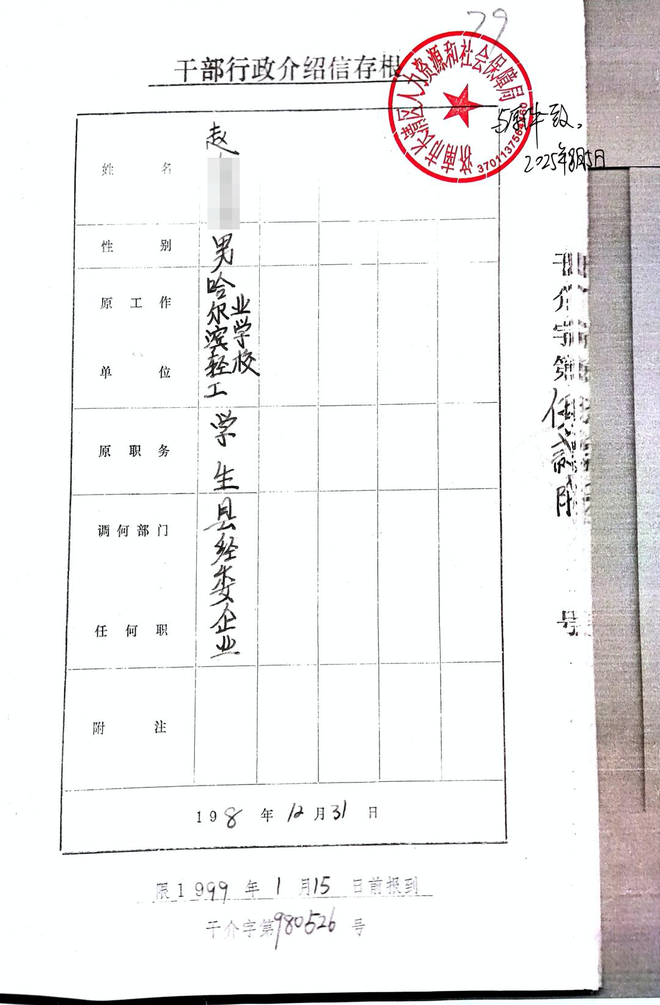 79
干部行政介绍信存根
济南市长清区人力资源和社会保障局
与原件一致。
2025年8月5日
姓名 赵
性别 男
原工作单位 哈尔滨轻工业学校
原职务 学生
调何部门任何职 县经委企业
附注
198年12月31日
限1999年1月15日前报到
干介字第980526号
干介字第
号